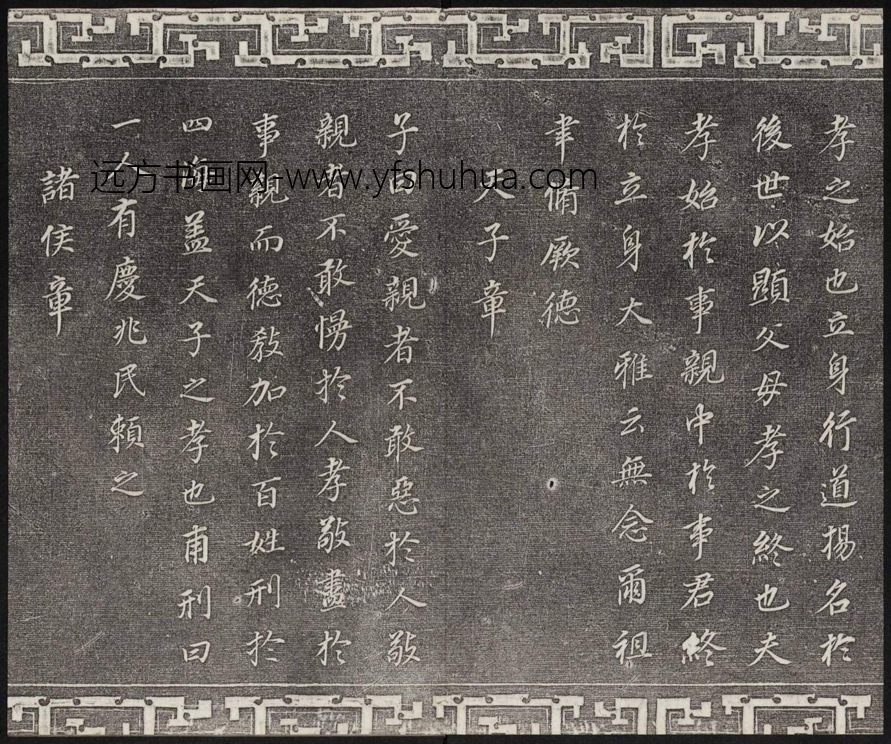 孝之始也立身行道揚名於
後世以顯父母孝之終也夫
孝始於事親中於事君終
於立身大雅云無念爾祖
聿脩厥德
天子章
子曰愛親者不敢惡於人敬
親者不敢慢於人孝敬盡於
事親而德教加於百姓刑於
四海蓋天子之孝也甫刑曰
一人有慶兆民賴之
諸侯章
远方书画网-www.yfshuhua.com